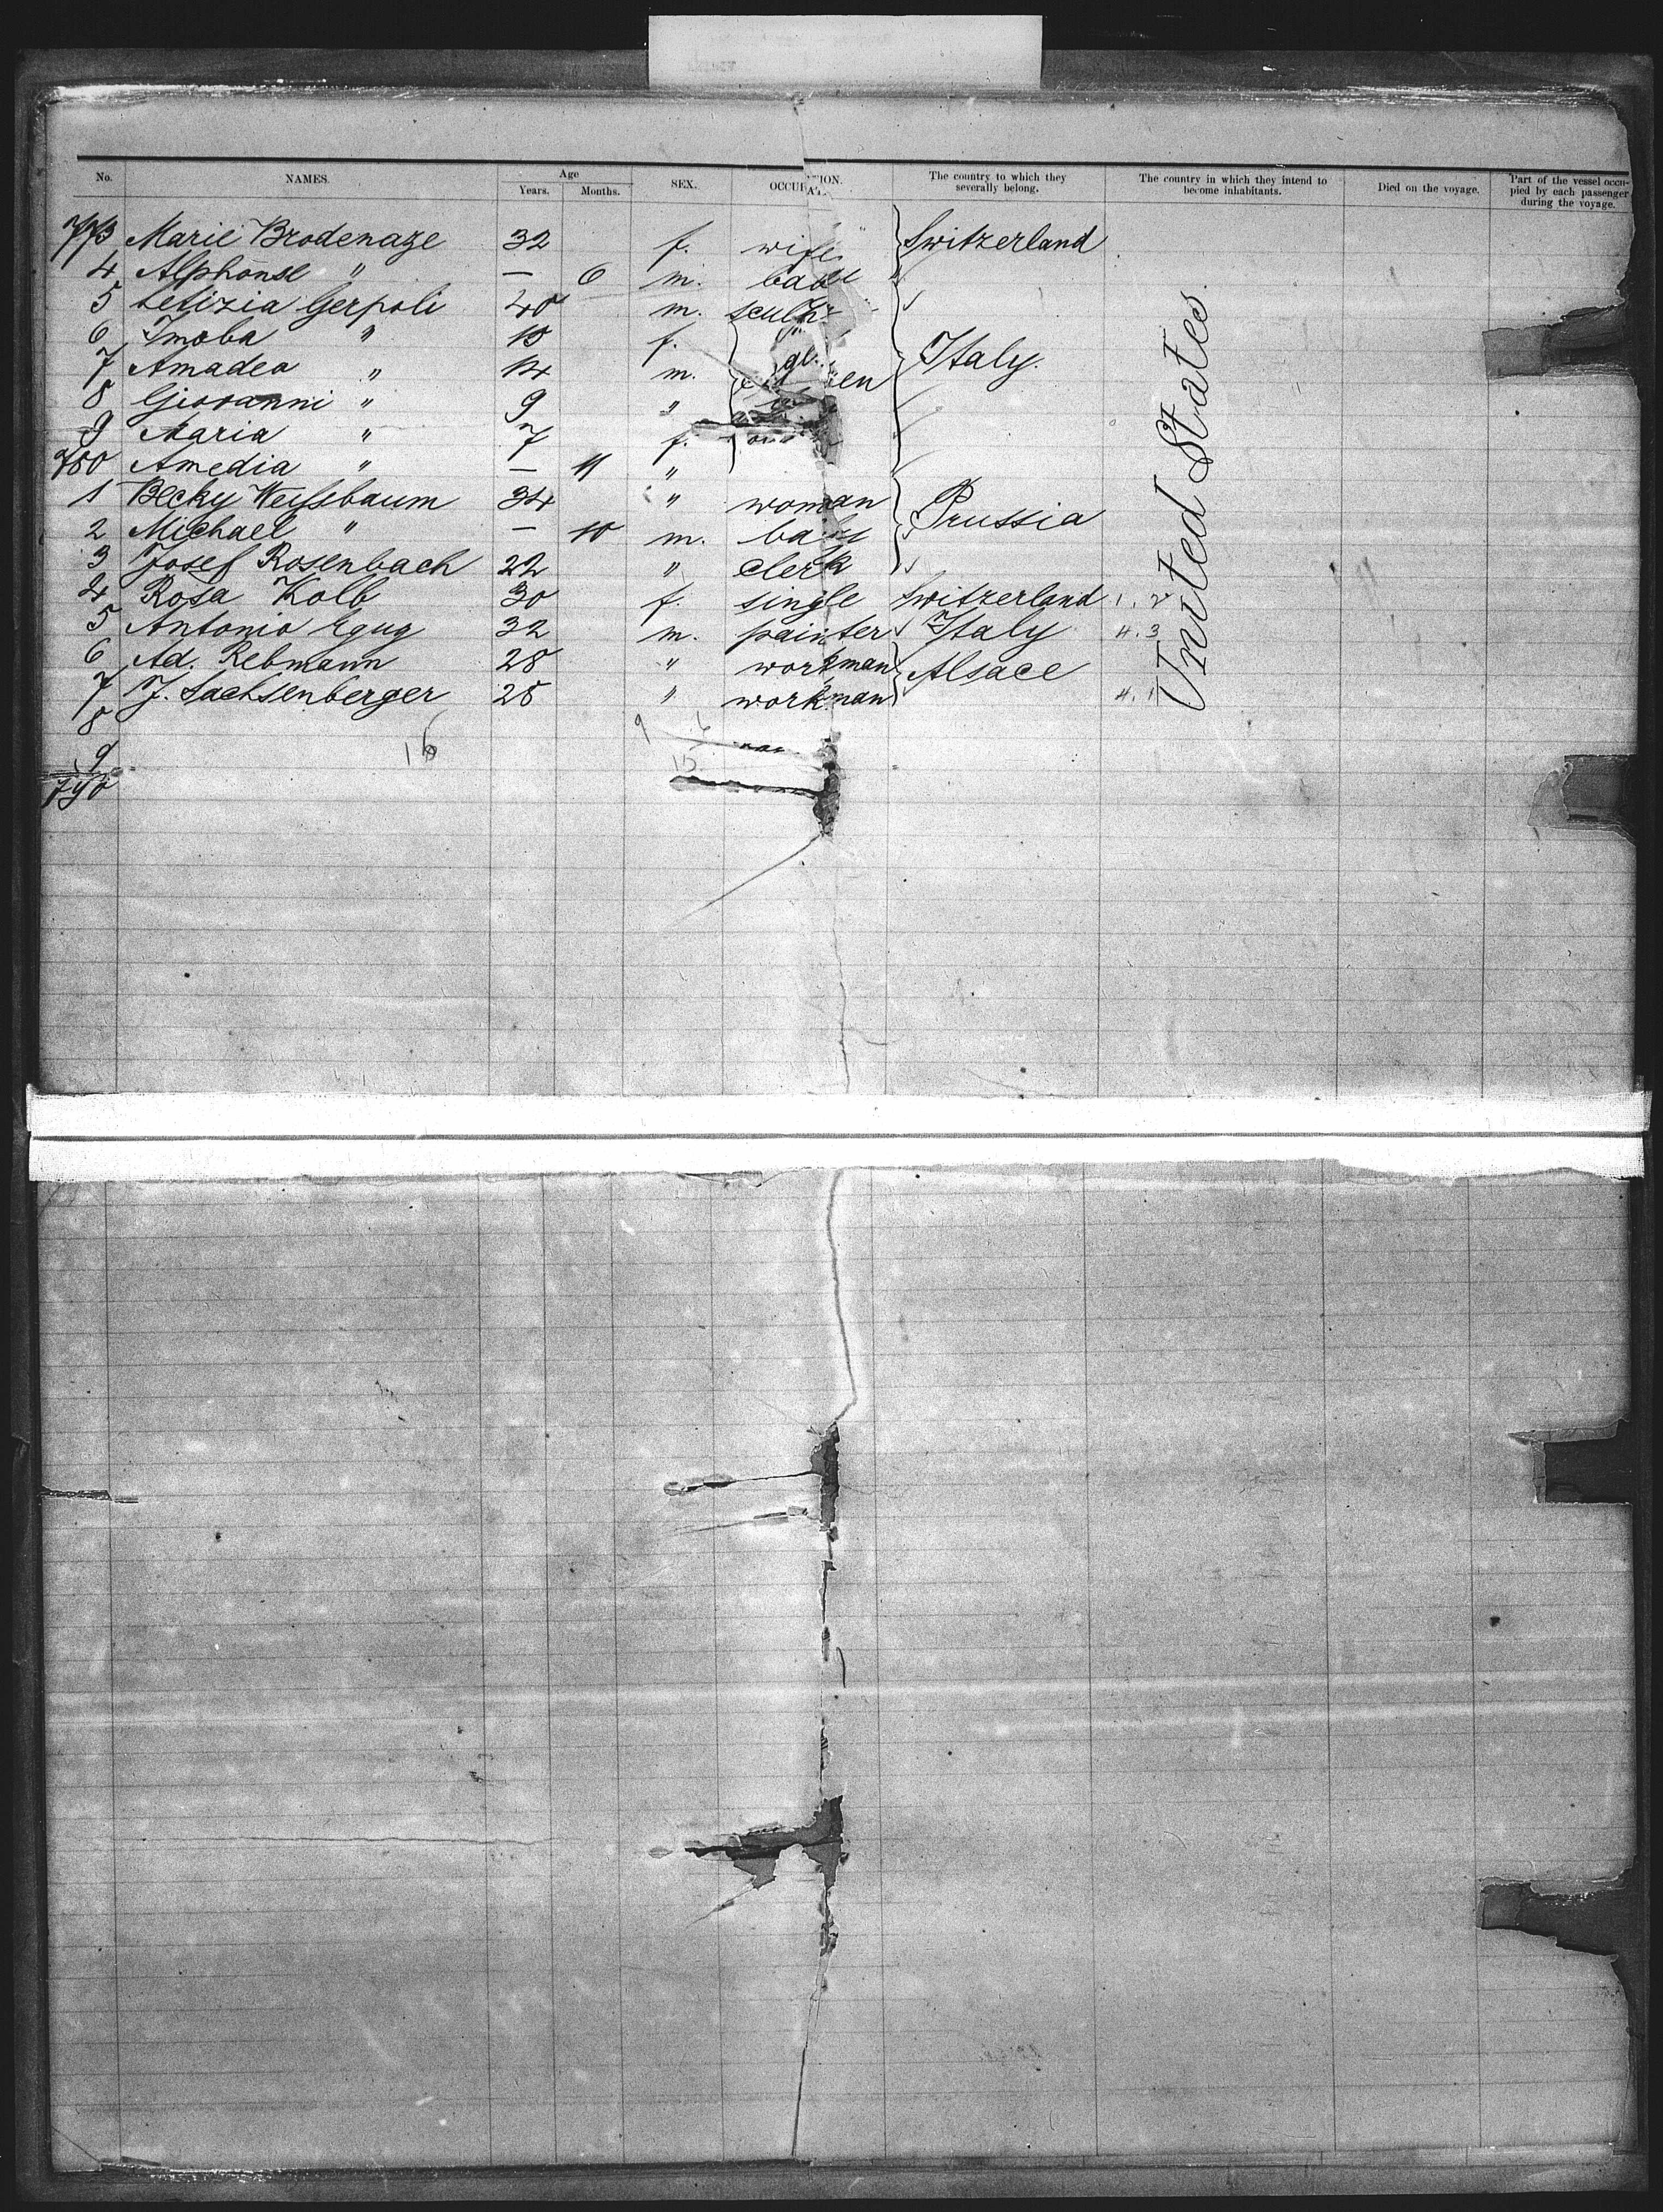 No. NAMES. Age Years. Months. SEX. OCCUPATION. The country to which they severally belong. The country in which they intend to become inhabitants. Died on the voyage. Part of the vessel occupied by each passenger during the voyage.
773 Marie Brodenaze 32 f. wife Switzerland
4 Alphonse " — 6 m. babe
5 Letizia Gerpoli 40 m.
6 Imoba " 18 f.
7 Amadea " 14 m. Italy.
8 Giovanni " 9 "
9 Maria " 7 f.
780 Amedia " — 11 "
1 Becky Weissbaum 34 " woman Prussia
2 Michael " — 10 m.
3 Josef Rosenbach 22 " clerk
4 Rosa Kolb 30 f. single Switzerland 1.2
5 Antonio Egug 32 m. painter Italy 4.3
6 Ad. Rebmann 28 " workman Alsace
7 J. Sachsenberger 28 " workman 4.1
8
9
790
16
9 6
15
United States.